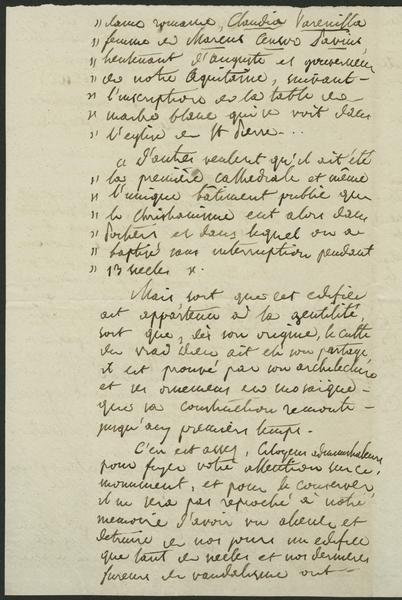 " dame romaine, Claudia Varenilla
" femme de Marcus Censor Pavius,
" lieutenant d'auguste et gouverneur
" de notre Aquitaine, suivant
" l'inscription de la table de
" marbre blanc qui se voit dans
" l'eglise de St Pierre...
" D'autres veulent qu'il ait été
" la première cathedrale et même
" l'unique bâtiment public que
" le christianisme eut alors dans
" Poitiers et dans lequel on a
" baptisé sans interruption pendant
" 13 siecles ".
Mais, soit que cet edifice
ait appartenu à la gentilité,
soit que, dès son origine, le culte
du vrai Dieu ait été son partage,
il est prouvé par son architecture
et ses ornemens en mosaique
que sa construction remonte
jusqu'aux premiers temps.
C'en est assez, Citoyens administrateurs
pour fixer votre attention sur ce
monument, et pour le conserver,
il ne sera pas reproché à notre
memoire d'avoir vu abattre et
detruire de nos jours un edifice
que tant de siecles et nos dernieres
fureurs de vandalisme ont